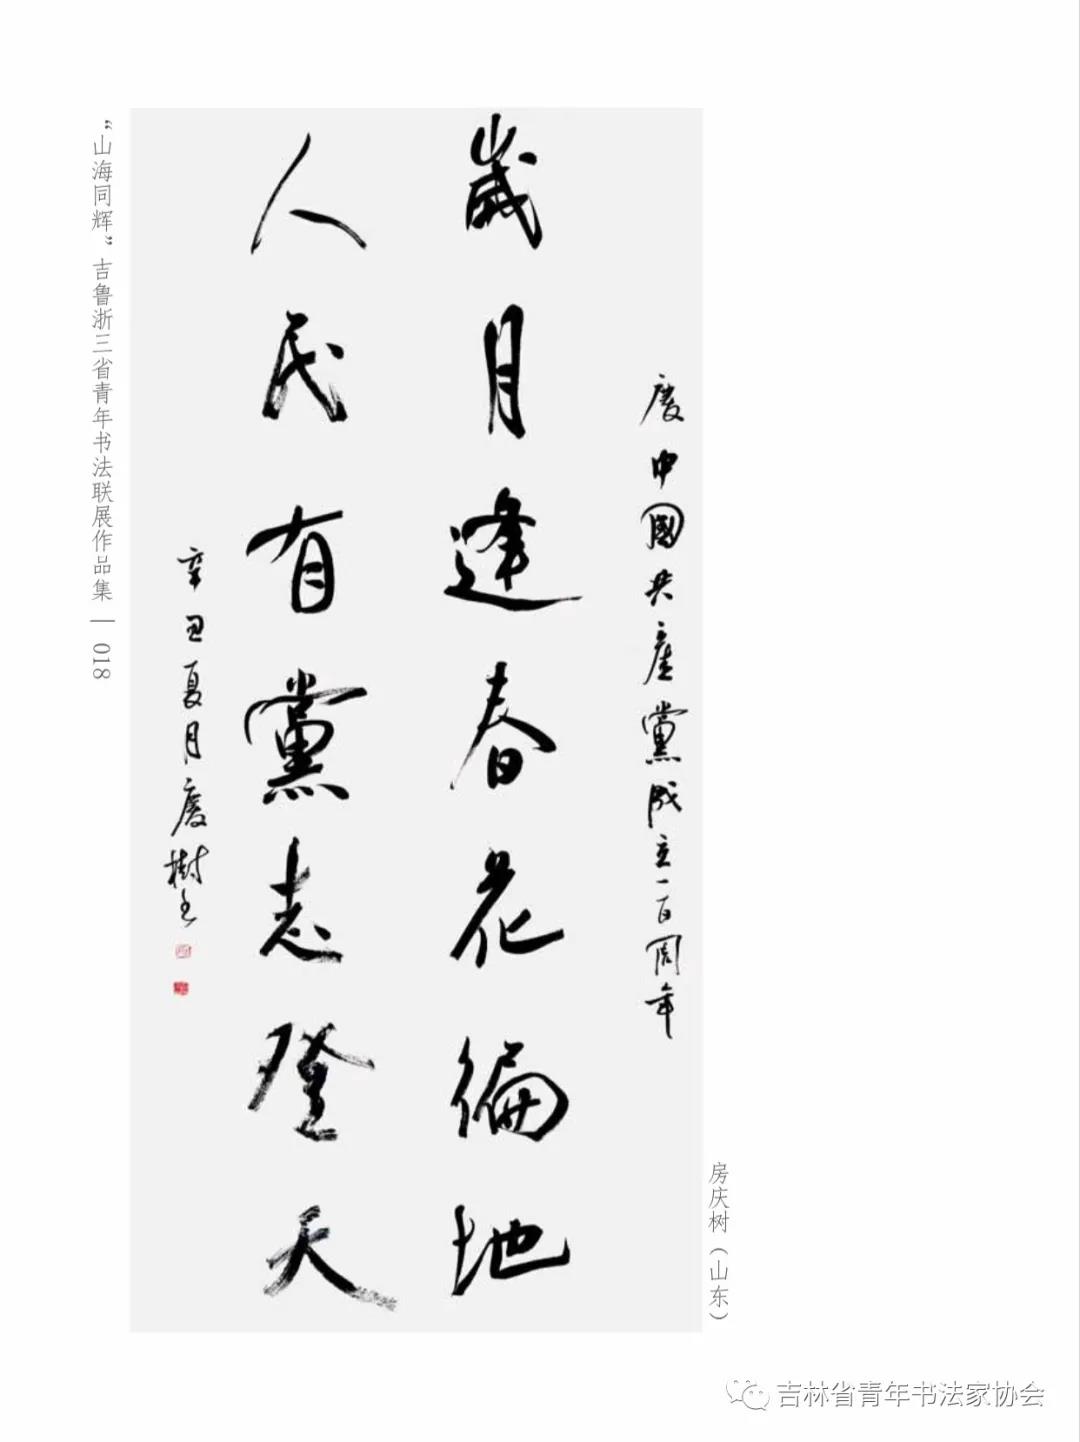 慶中國共產黨成立一百周年
歲月逢春花徧地
人民有黨志登天
辛丑夏月慶樹書
“山海同辉”吉鲁浙三省青年书法联展作品集 | 018
房庆树（山东）
吉林省青年书法家协会